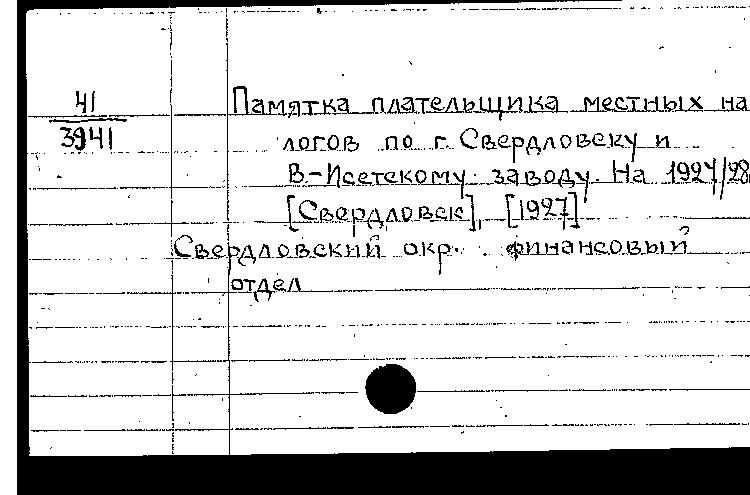 41
3941
Памятка плательщика местных на
логов по г. Свердловску и
В-Исетскому заводу. На 1927/28
[Свердловск], [1927]
Свердловский окр. финансовый
отдел